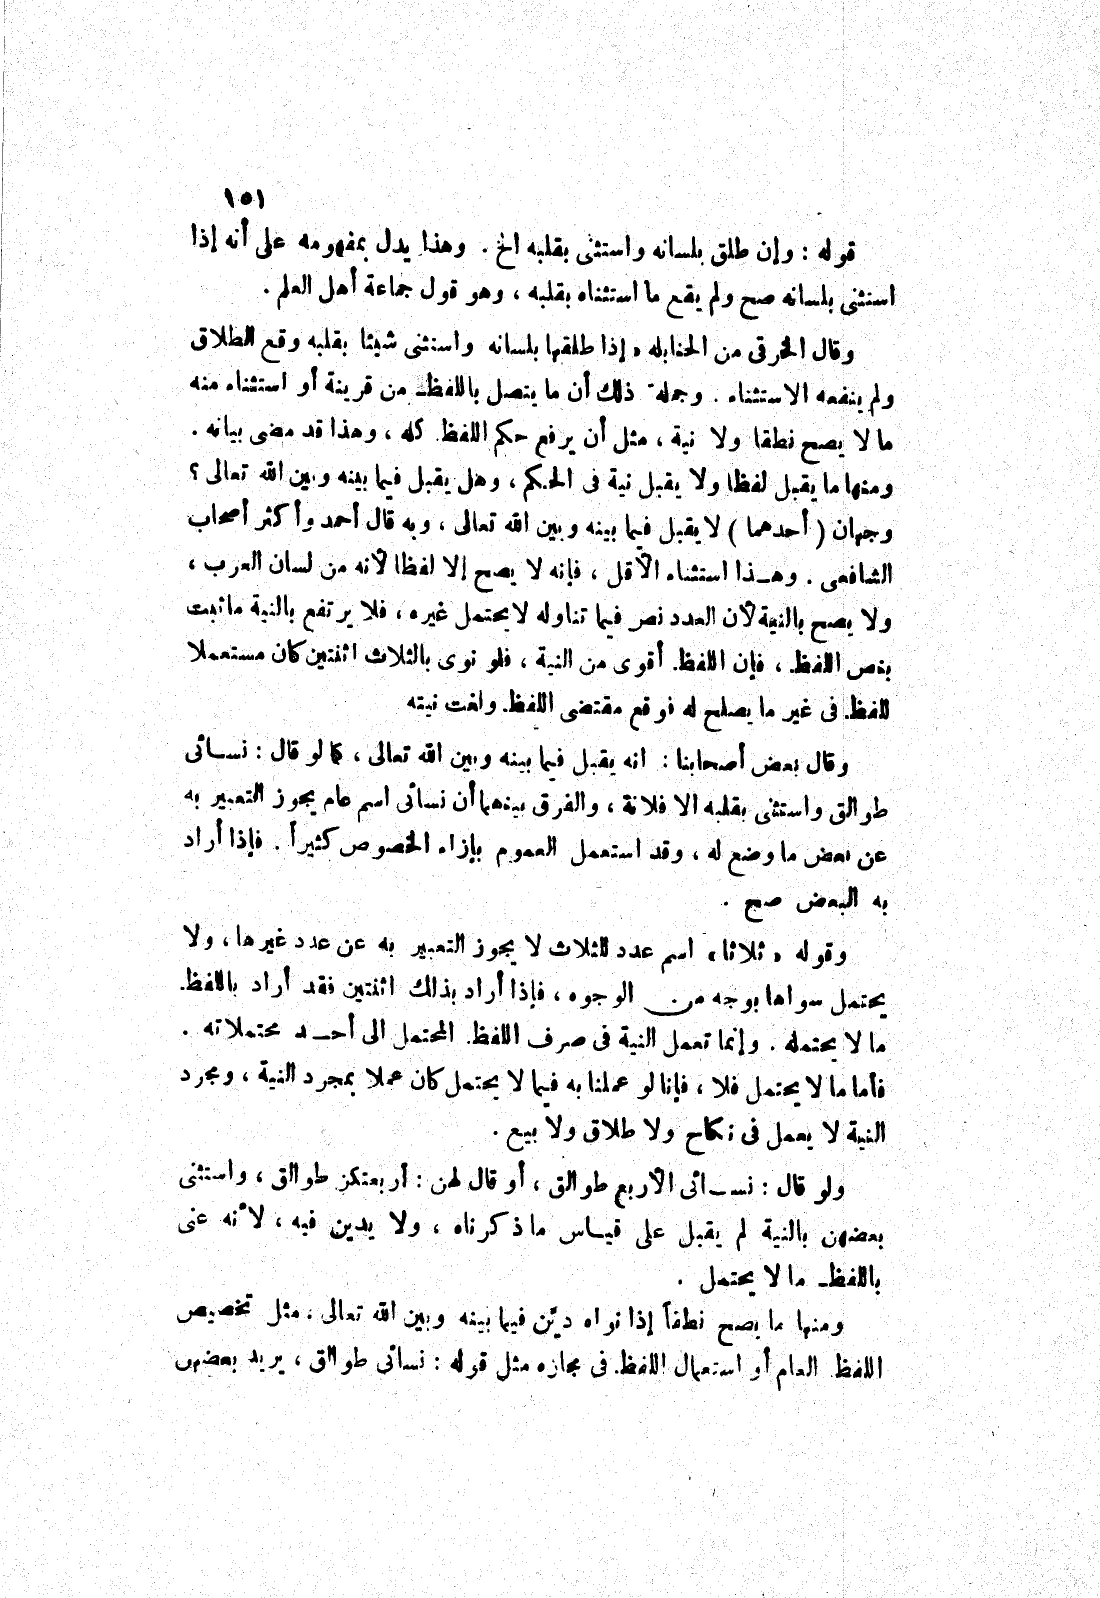 ١٥١
قوله : وإن طلق بلسانه واستثنى بقلبه الخ . وهذا يدل بمفهومه على أنه إذا
استثنى بلسانه صح ولم يقع ما استثناه بقلبه ، وهو قول جماعة أهل العلم .
وقال الخرقى من الحنابله « إذا طلقها بلسانه واستثنى شيئا بقلبه وقع الطلاق
ولم ينفعه الاستثناء . وجملة ذلك أن ما يتصل باللفظ من قرينة أو استثناء منه
ما لا يصح نطقا ولا نية ، مثل أن يرفع حكم اللفظ كله ، وهذا قد مضى بيانه .
ومنها ما يقبل لفظا ولا يقبل نية فى الحكم ، وهل يقبل فيما بينه وبين الله تعالى ؟
وجهان ( أحدهما ) لا يقبل فيما بينه وبين الله تعالى ، وبه قال أحمد وأكثر أصحاب
الشافعى . وهـذا استثناء الأقل ، فإنه لا يصح إلا لفظا لأنه من لسان العرب ،
ولا يصح بالنية لأن العدد نص فيما تناوله لا يحتمل غيره ، فلا يرتفع بالنية ما ثبت
بنص اللفظ ، فإن اللفظ أقوى من النية ، فلو نوى بالثلاث اثنتين كان مستعملا
للفظ فى غير ما يصلح له فوقع مقتضى اللفظ ولغت نيته
وقال بعض أصحابنا : انه يقبل فيما بينه وبين الله تعالى ، كما لو قال : نسـائى
طوالق واستثنى بقلبه الا فلانة ، والفرق بينهما أن نسائى اسم عام يجوز التعبير به
عن بعض ما وضع له ، وقد استعمل العموم بإزاء الخصوص كثيراً . فإذا أراد
به البعض صح .
وقوله « ثلاثا » اسم عدد للثلاث لا يجوز التعبير به عن عدد غيرها ، ولا
يحتمل سواها بوجه من الوجوه ، فإذا أراد بذلك اثنتين فقد أراد باللفظ
ما لا يحتمله . وإنما تعمل النية فى صرف اللفظ المحتمل الى أحـد محتملاته .
فأما ما لا يحتمل فلا ، فإنا لو عملنا به فيما لا يحتمل كان عملا بمجرد النية ، ومجرد
النية لا يعمل فى نكاح ولا طلاق ولا بيع .
ولو قال : نسـائى الأربع طوالق ، أو قال لهن : أربعتكن طوالق ، واستثنى
بعضهن بالنية لم يقبل على قيـاس ما ذكرناه ، ولا يدين فيه ، لأنه عنى
باللفظ ما لا يحتمل .
ومنها ما يصح نطقاً إذا نواه ديّن فيما بينه وبين الله تعالى ، مثل تخصيص
اللفظ العام أو استعمال اللفظ فى مجازه مثل قوله : نسائى طوالق ، يريد بعضهن